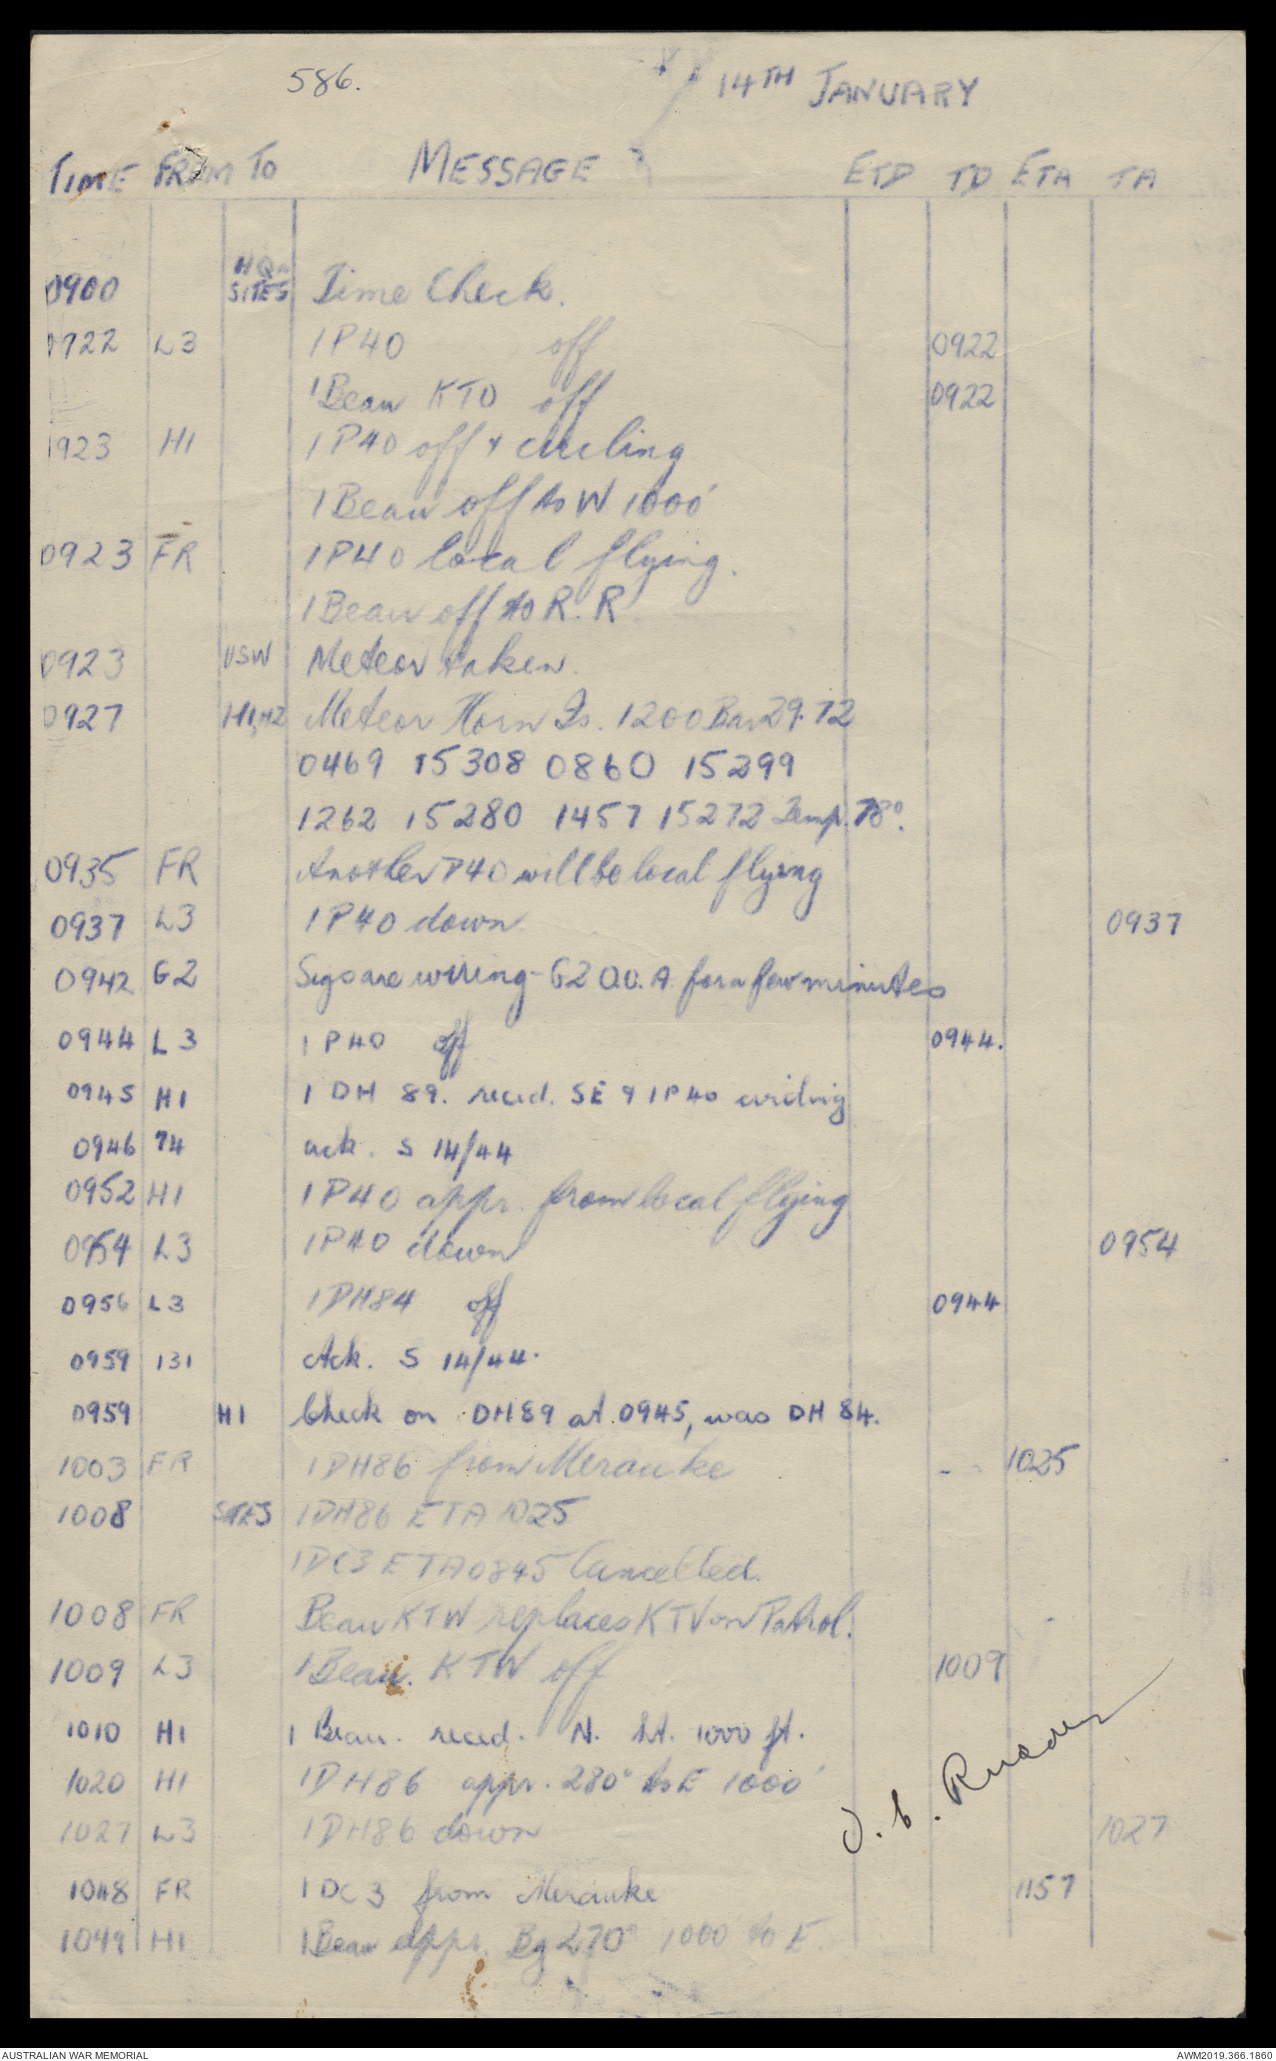 586.
14TH JANUARY
TIME FROM TO MESSAGE ETD TD ETA TA
HQn
0900 SITES Time Check.
0922 L3 1 P40 off 0922
1 Beau KTO off 0922
0923 H1 1 P40 off & circling
1 Beau off to W 1000'
0923 FR 1 P40 local flying.
1 Beau off to R.R
0923 USW Meteor taken.
0927 H1, H2 Meteor Horn Is. 1200 Bar 29.72
0469 15308 0860 15299
1262 15280 1457 15272 Temp. 78°.
0935 FR Another P40 will be local flying
0937 L3 1 P40 down 0937
0942 G2 Sigs are wiring - G2 O.O.A. for a few minutes
0944 L3 1 P40 off 0944.
0945 H1 1 DH 89. recd. SE & 1 P40 circling
0946 74 ack. S 14/44
0952 H1 1 P40 appr. from local flying
0954 L3 1 P40 down 0954
0956 L3 1 DH84 off 0944
0959 131 Ack. S 14/44.
0959 H1 Check on DH89 at 0945, was DH 84.
1003 FR 1 DH86 from Merauke - 1025
1008 SITES 1 DH86 ETA 1025
1 DC3 ETA 0845 Cancelled.
1008 FR Beau KTW replaces KTV on Patrol.
1009 L3 1 Beau. KTW off 1009
1010 H1 1 Beau. recd. N. ht. 1000 ft.
1020 H1 1 DH86 appr. 280° to E 1000'
1027 L3 1 DH86 down 1027
1048 FR 1 DC3 from Merauke 1157
1049 H1 1 Beau appr. Bg 270° 1000 to E.
AUSTRALIAN WAR MEMORIAL AWM2019.366.1860